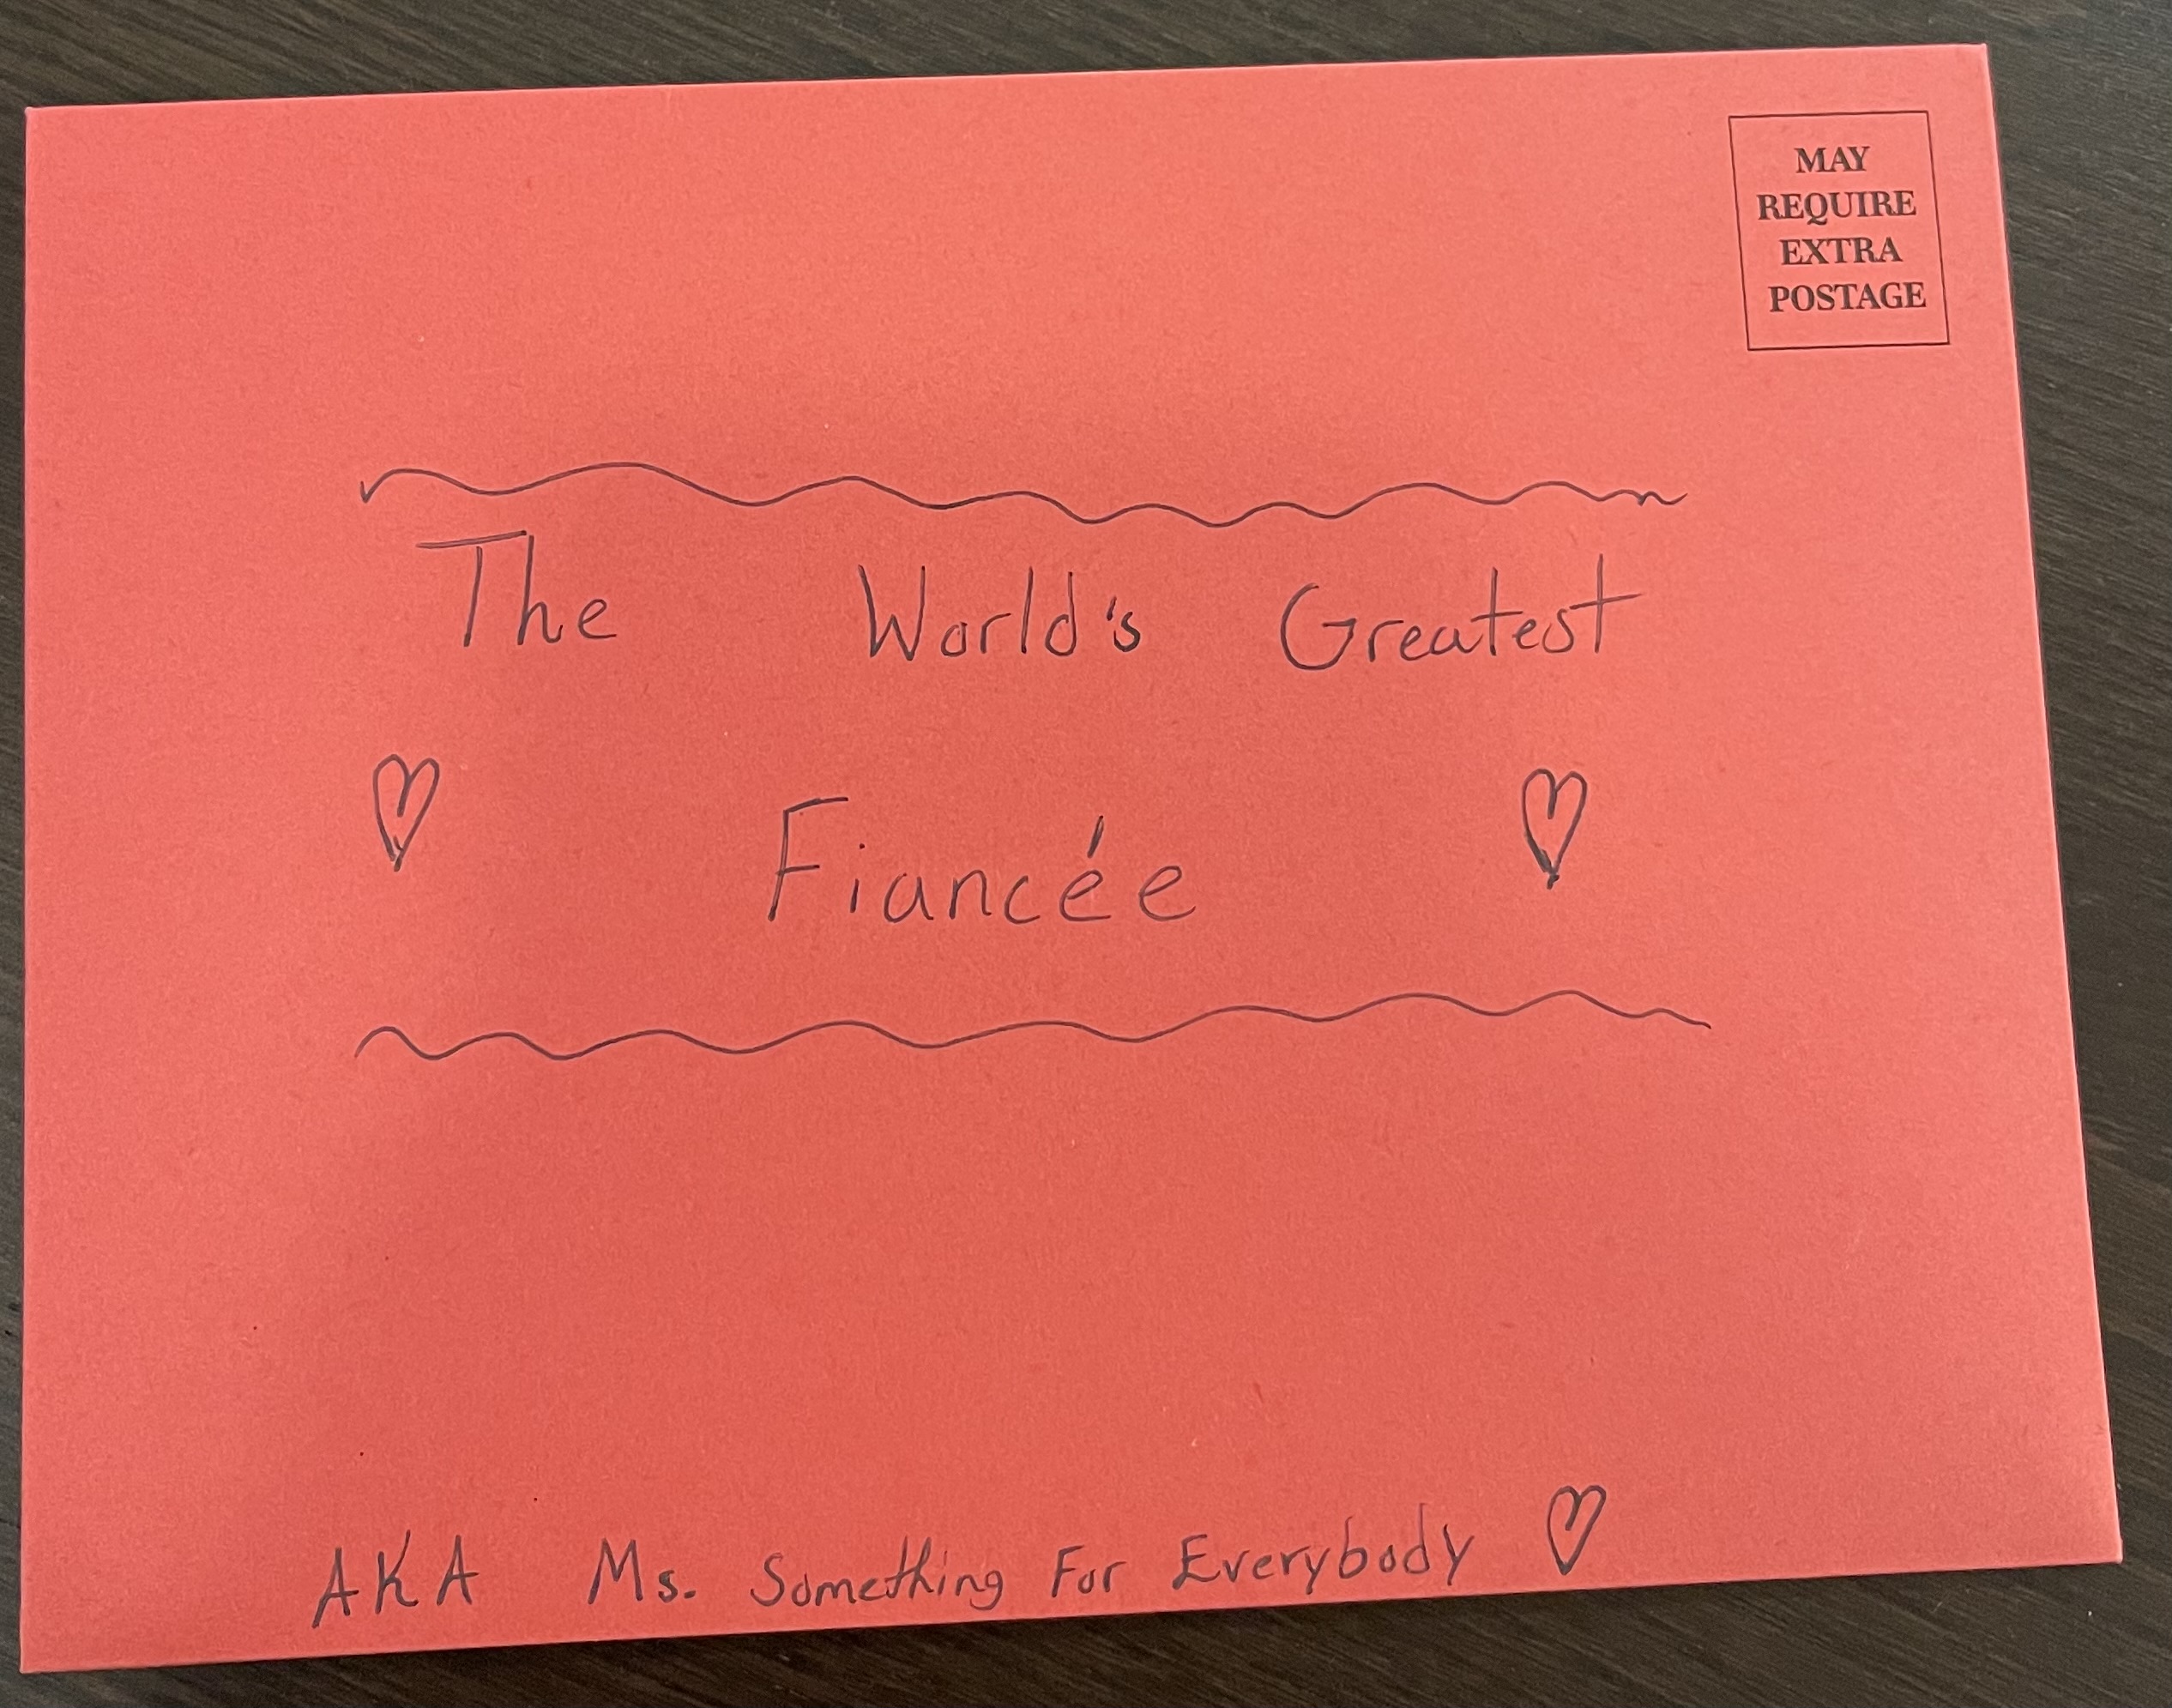 MAY
REQUIRE
EXTRA
POSTAGE
The World's Greatest
Fiancée
AKA Ms. Something For Everybody